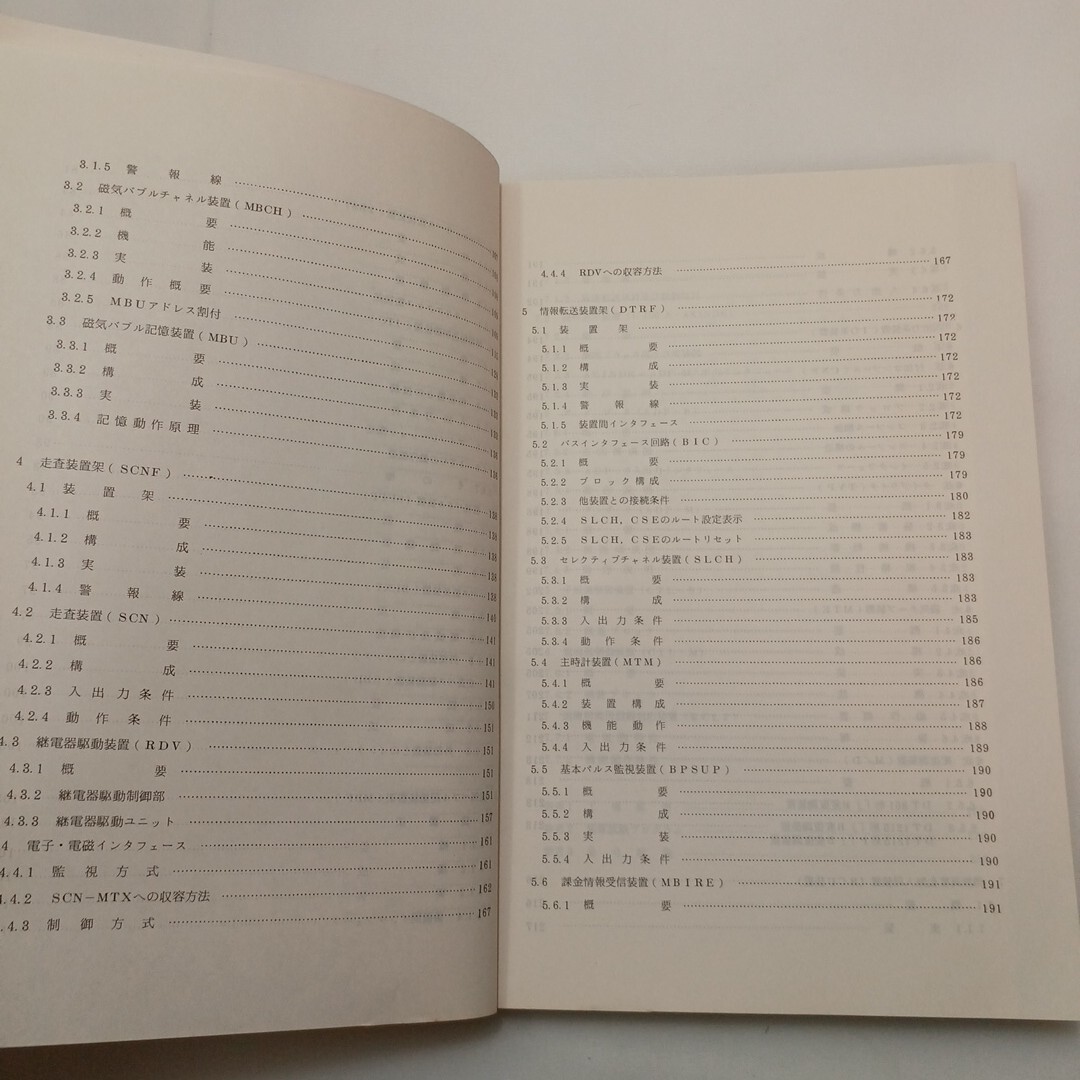 3.1.5 警報線
3.2 磁気バブルチャネル装置(MBCH)
3.2.1 概要
3.2.2 機能
3.2.3 実装
3.2.4 動作概要
3.2.5 MBUアドレス割付
3.3 磁気バブル記憶装置(MBU)
3.3.1 概要
3.3.2 構成
3.3.3 実装
3.3.4 記憶動作原理
4 走査装置架(SCNF)
4.1 装置架
4.1.1 概要
4.1.2 構成 138
4.1.3 実装 138
4.1.4 警報線 138
4.2 走査装置(SCN)
4.2.1 概要 141
4.2.2 構成 141
4.2.3 入出力条件
4.2.4 動作条件 151
4.3 継電器駆動装置(RDV) 151
4.3.1 概要 151
4.3.2 継電器駆動制御部 151
4.3.3 継電器駆動ユニット 157
4 電子・電磁インタフェース 161
.4.1 監視方式 161
.4.2 SCN-MTXへの収容方法 162
.4.3 制御方式 167
4.4.4 RDVへの収容方法 167
5 情報転送装置架(DTRF) 172
5.1 装置架 172
5.1.1 概要 172
5.1.2 構成 172
5.1.3 実装 172
5.1.4 警報線 172
5.1.5 装置間インタフェース 172
5.2 バスインタフェース回路(BIC) 179
5.2.1 概要 179
5.2.2 ブロック構成 179
5.2.3 他装置との接続条件 180
5.2.4 SLCH, CSEのルート設定表示 182
5.2.5 SLCH, CSEのルートリセット 183
5.3 セレクティブチャネル装置(SLCH) 183
5.3.1 概要 183
5.3.2 構成 183
5.3.3 入出力条件 185
5.3.4 動作条件 186
5.4 主時計装置(MTM) 186
5.4.1 概要 186
5.4.2 装置構成 187
5.4.3 機能動作 188
5.4.4 入出力条件 189
5.5 基本パルス監視装置(BPSUP) 190
5.5.1 概要 190
5.5.2 構成 190
5.5.3 実装 190
5.5.4 入出力条件 190
5.6 課金情報受信装置(MBIRE) 191
5.6.1 概要 191